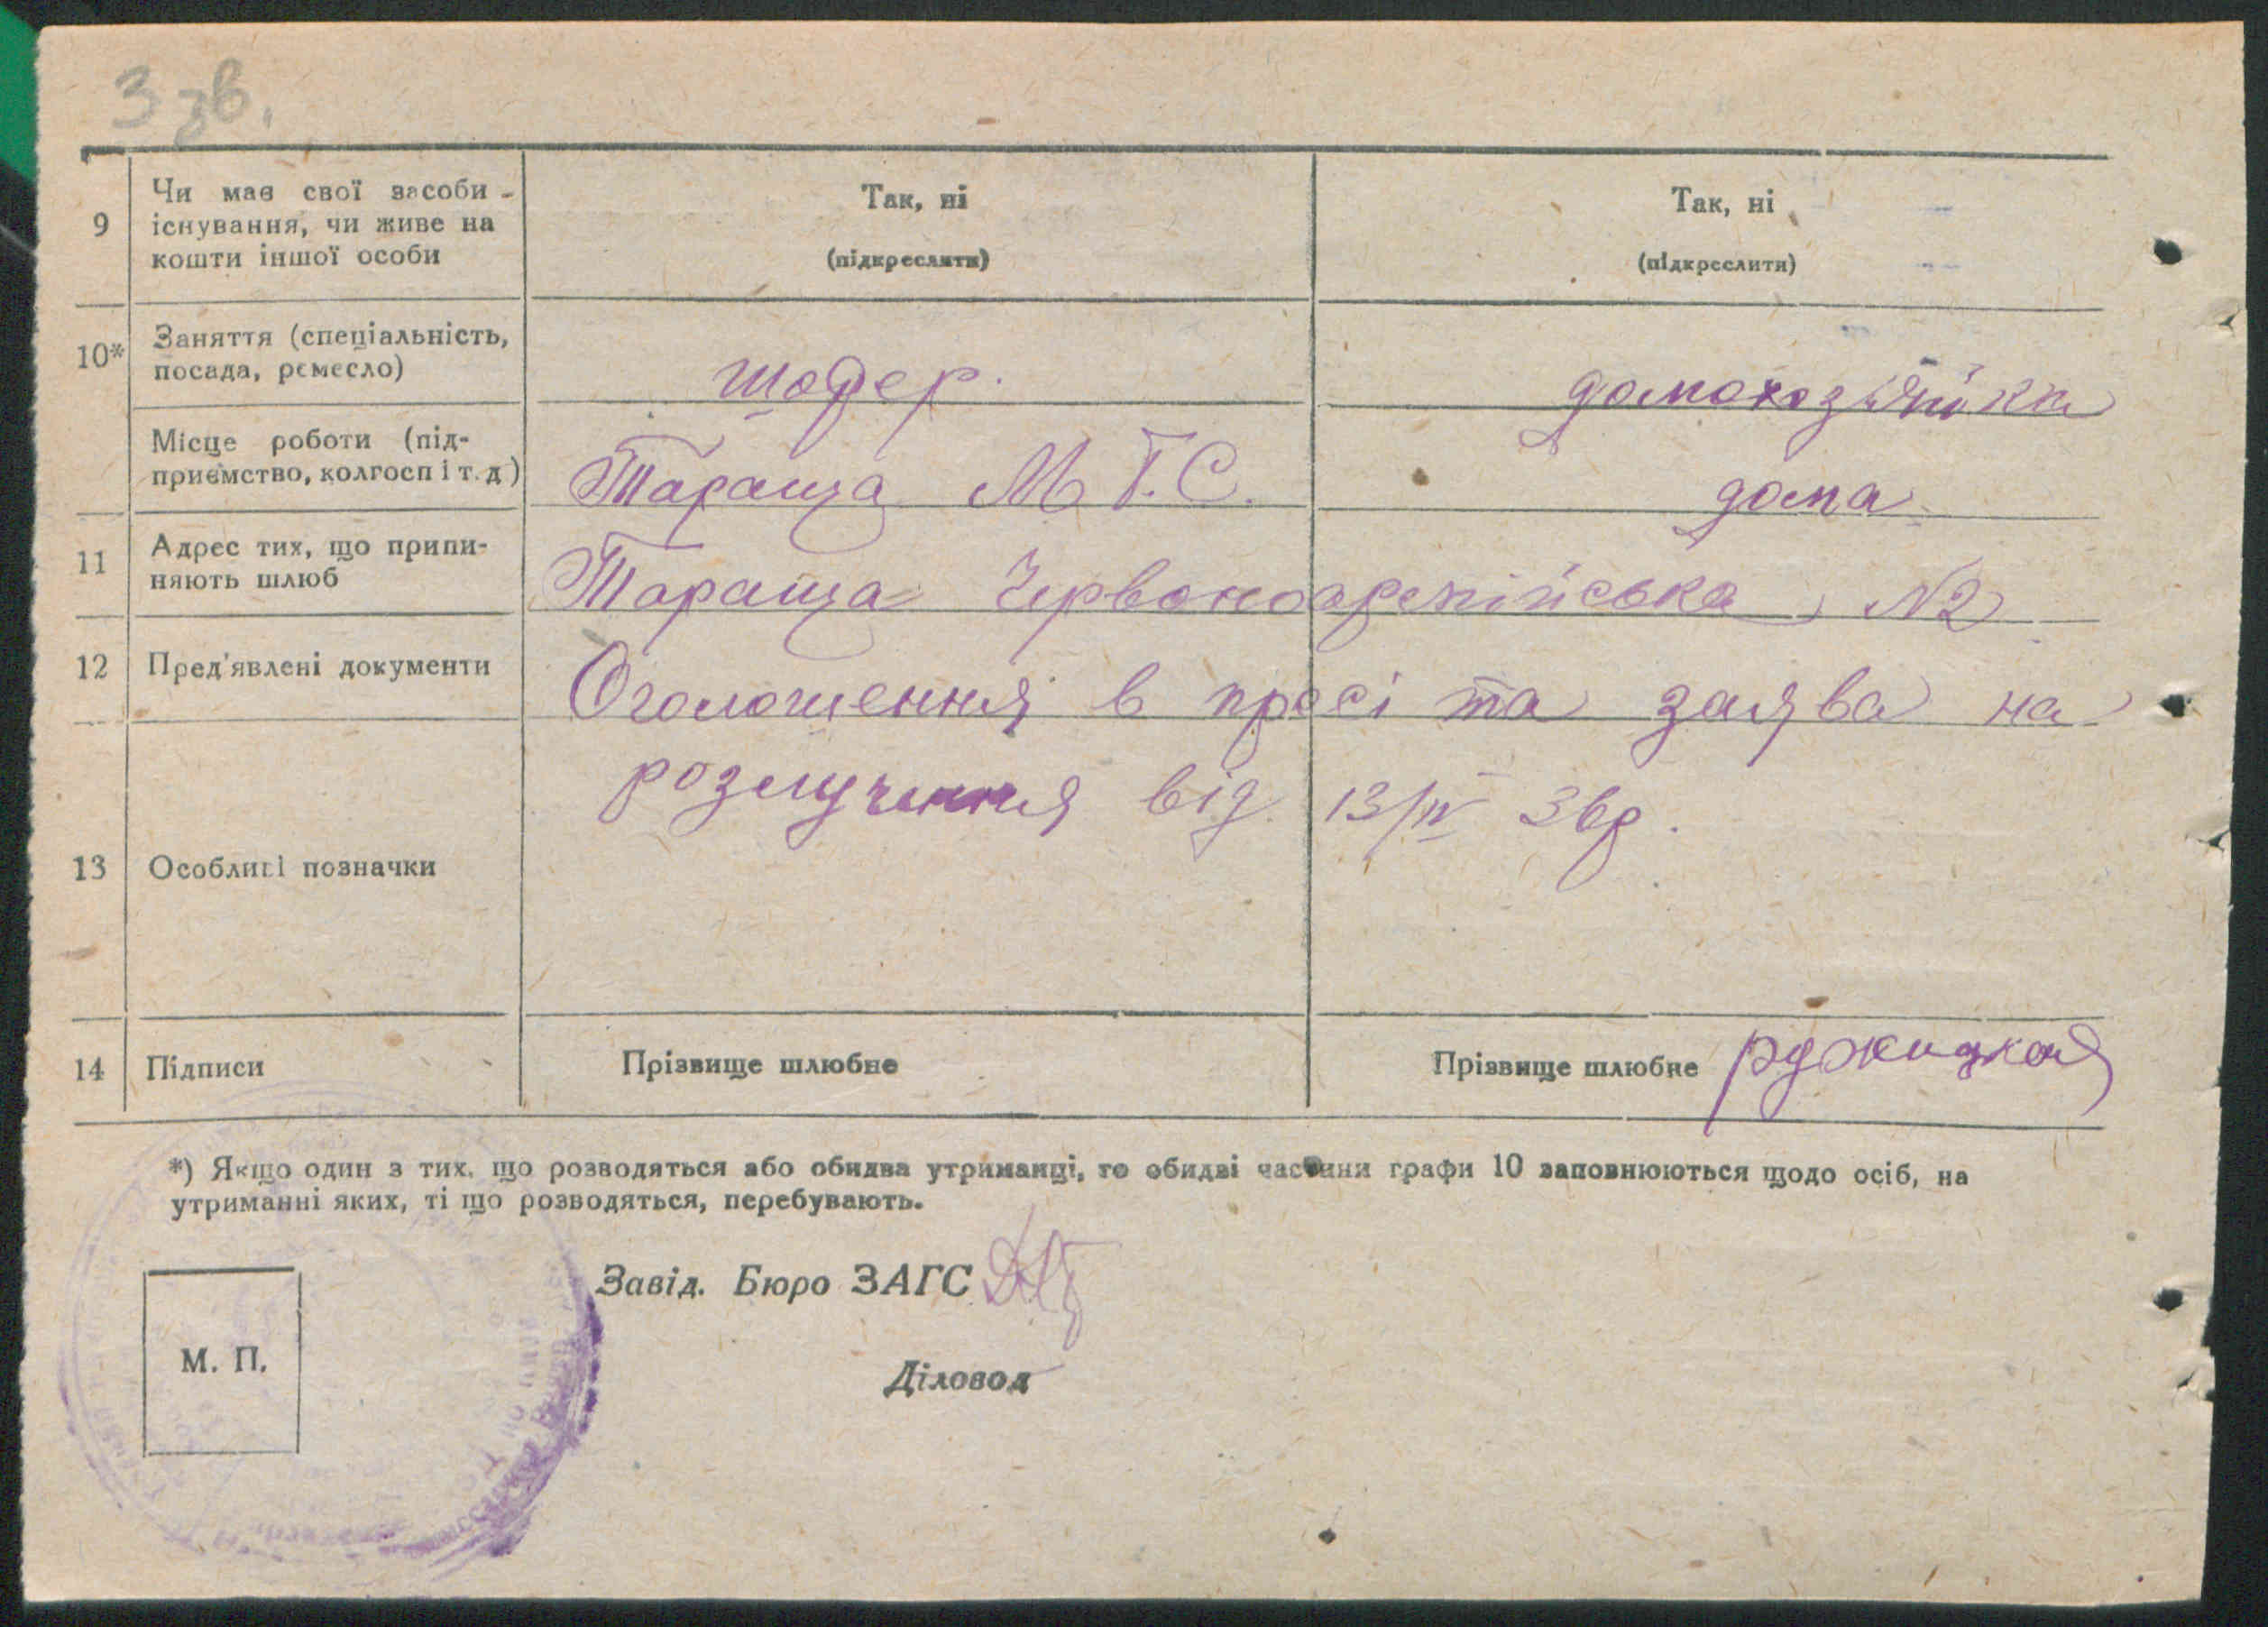 3 зв.
9 Чи має свої засоби існування, чи живе на кошти іншої особи
Так, ні (підкреслити)
Так, ні (підкреслити)
10* Заняття (спеціальність, посада, ремесло)
шофер.
домохозяйка
Місце роботи (підприємство, колгосп і т. д)
Тараща М.Т.С.
дома
11 Адрес тих, що припиняють шлюб
Тараща Червоноармійська, №2
12 Пред'явлені документи
Оголошення в пресі та заява на
розлучення від 13/IV 36р.
13 Особливі позначки
14 Підписи
Прізвище шлюбне
Прізвище шлюбне Ружицкая
*) Якщо один з тих, що розводяться або обидва утриманці, то обидві частини графи 10 заповнюються щодо осіб, на
утриманні яких, ті що розводяться, перебувають.
Завід. Бюро ЗАГС
Діловод
М. П.